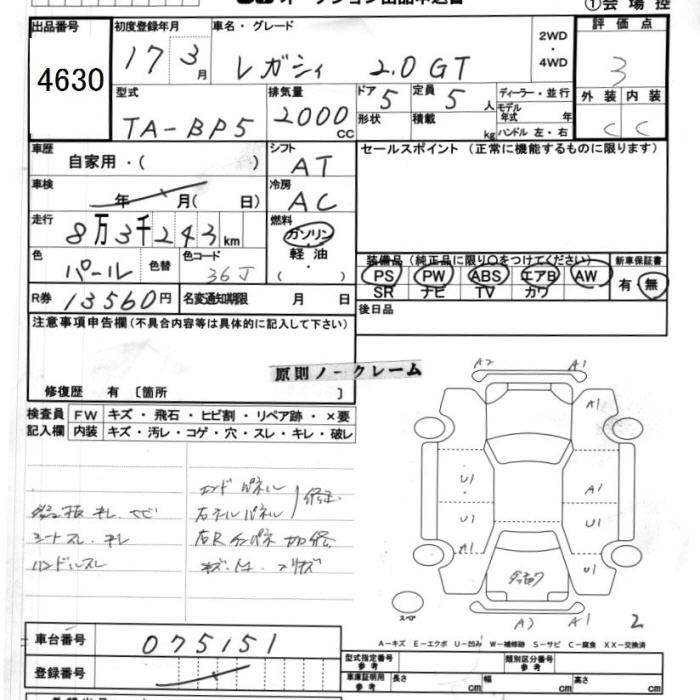 ①会場控
出品番号
4630
初度登録年月
17 3月
車名・グレード
レガシィ 2.0GT
2WD
・
4WD
評価点
3
外装 内装
C C
型式
TA-BP5
排気量
2000
CC
ドア 5
定員 5 人
形状
積載
kg
ディーラー・並行
モデル
年式 年
ハンドル 左・右
車歴
自家用・( )
シフト
AT
セールスポイント (正常に機能するものに限ります)
車検
年 月( 日)
冷房
AC
走行
8万3千243km
燃料
ガソリン
・
軽油
・
( )
色
パール
色替
色コード
36J
装備品 (純正品に限り○をつけてください)
PS PW ABS エアB AW
SR ナビ TV カワ
新車保証書
有・無
R券 13560円
名変通知期限 月 日
後日品
注意事項申告欄(不具合内容等は具体的に記入して下さい)
原則ノークレーム
修復歴 有 〔箇所 〕
検査員
記入欄
FW キズ・飛石・ヒビ割・リペア跡・×要
内装 キズ・汚レ・コゲ・穴・スレ・キレ・破レ
シートスレ、キレ
ハンドルスレ
A2 A1
A1
U1 A1
U1 U1
A1 U1
A3 A1
2
スペア
A-キズ E-エクボ U-凹み W-補修跡 S-サビ C-腐食 XX-交換済
車台番号
075151
登録番号
型式指定番号
参考
類別区分番号
参考
車庫証明用
参考
長さ cm
幅 cm
高さ cm